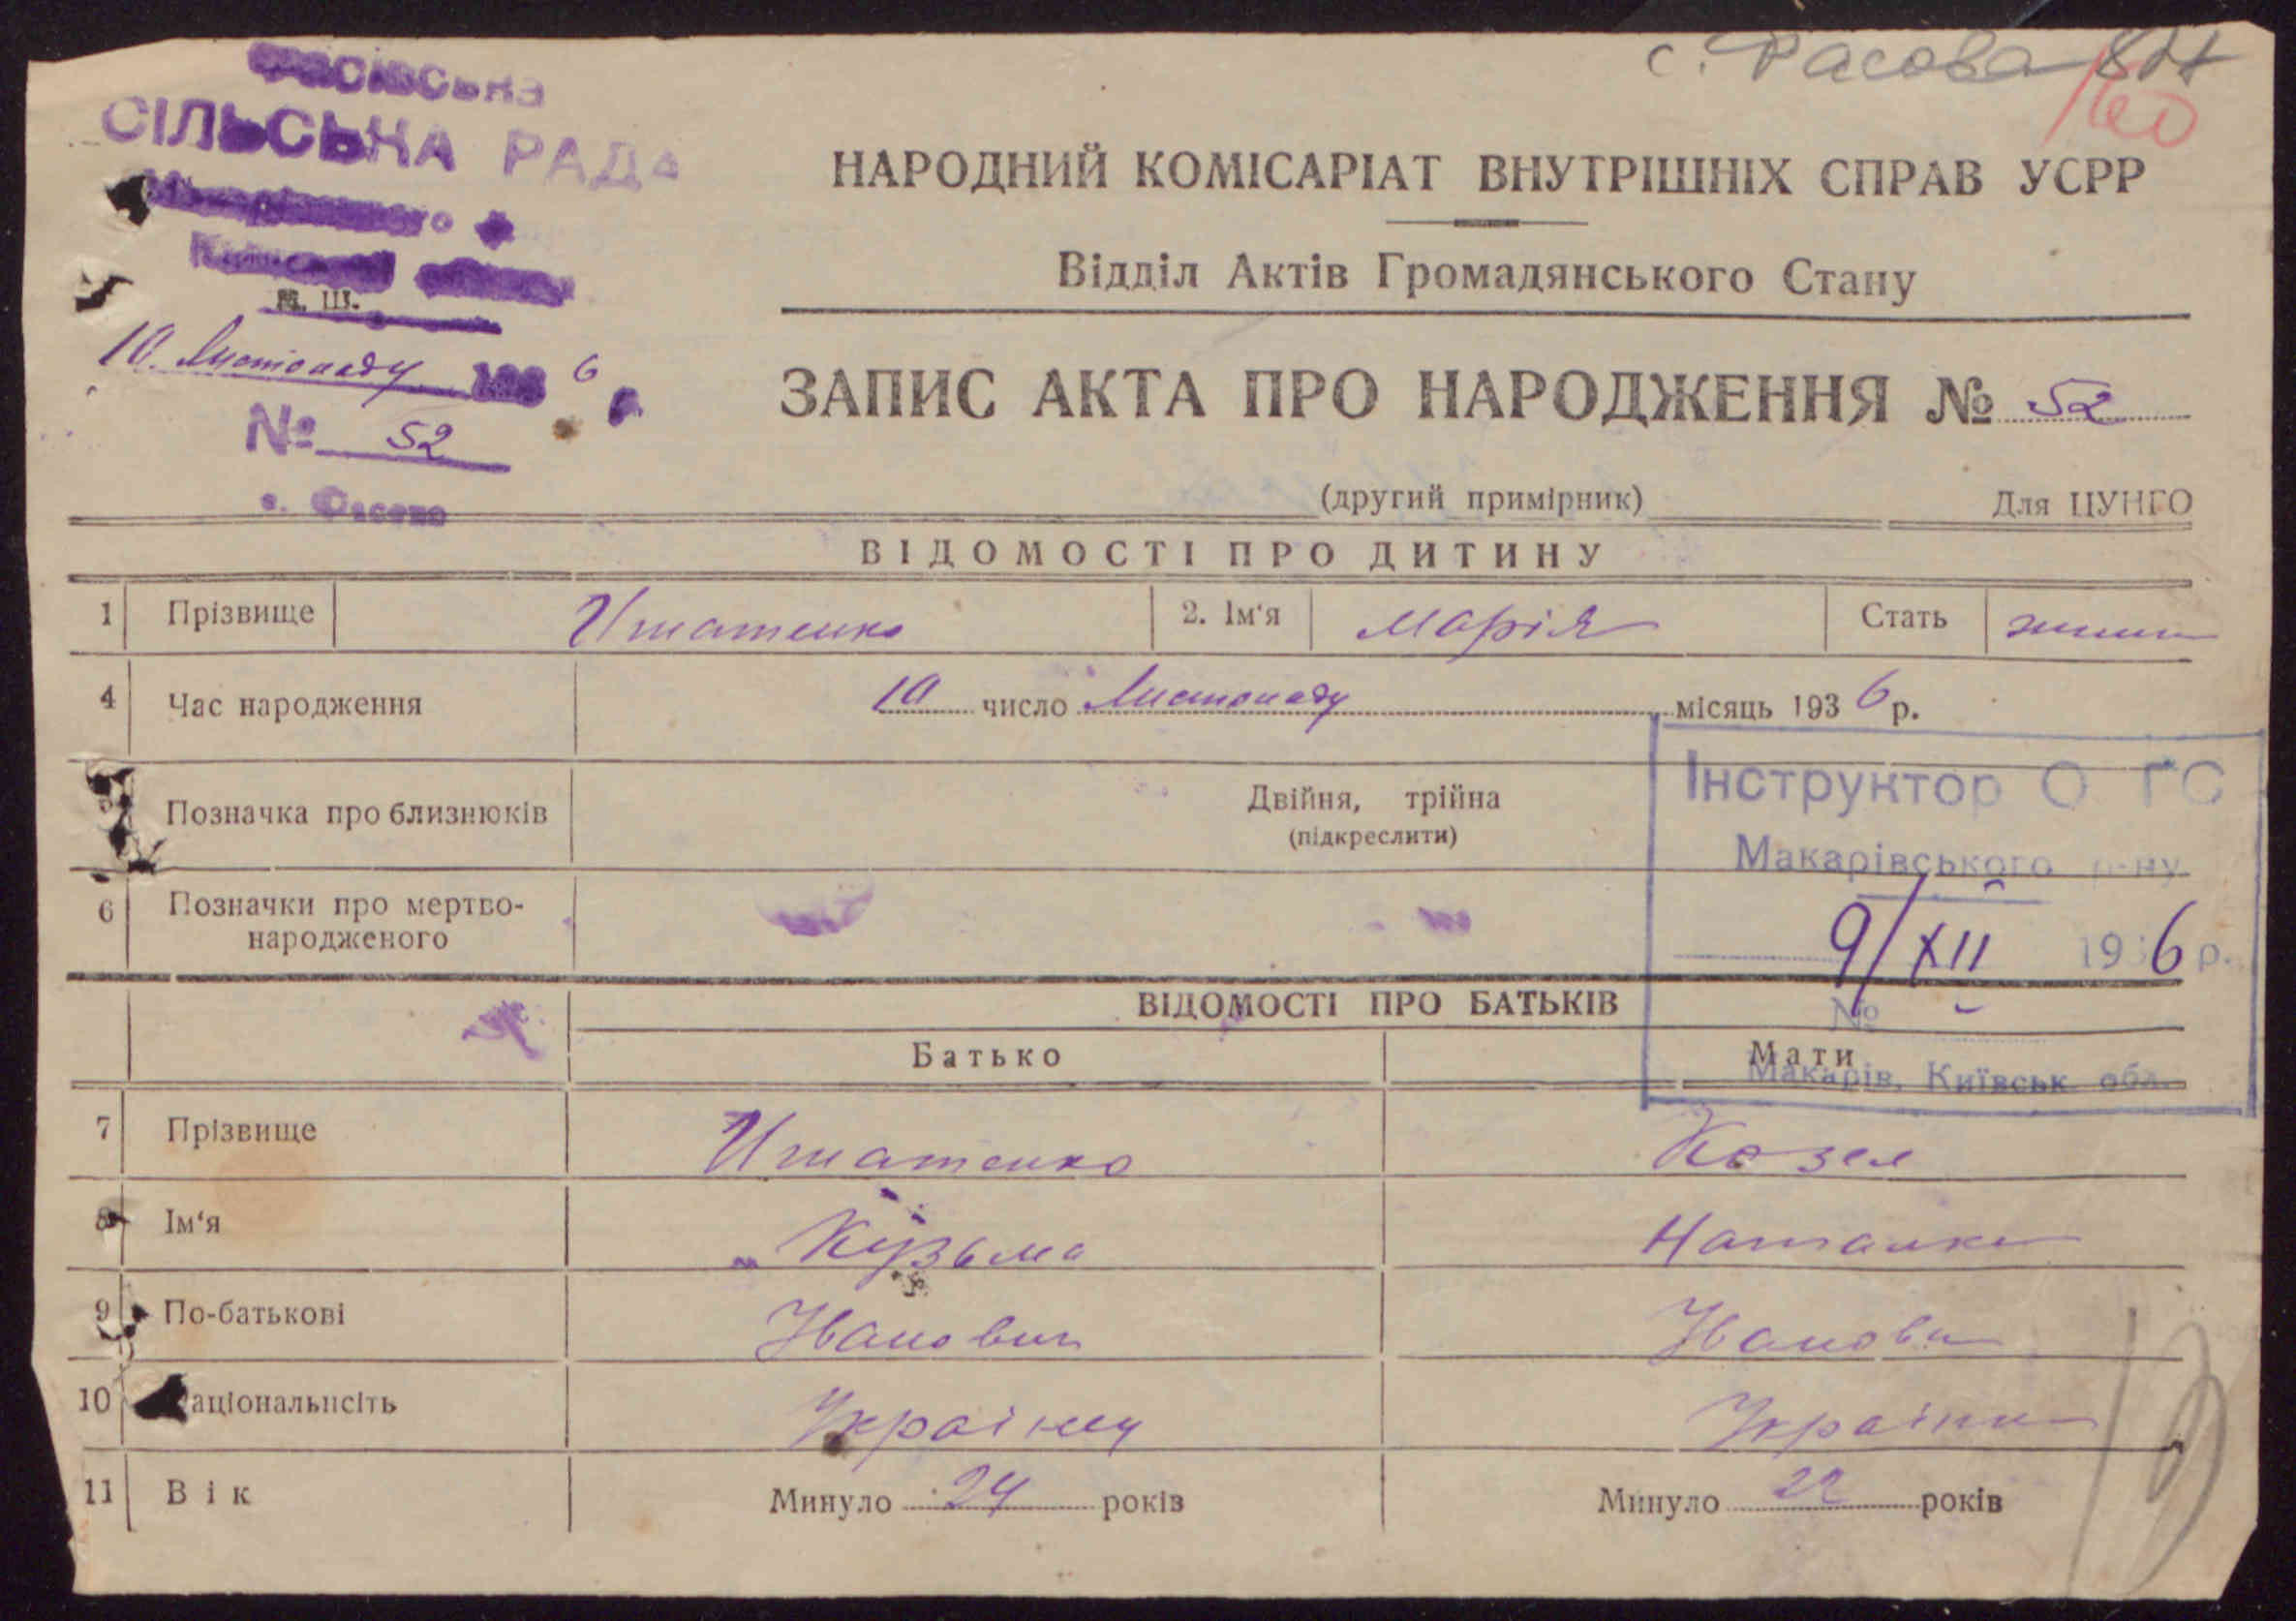 с. Фасова
160
Фасівська
СІЛЬСЬКА РАДА
10. Листопаду 1936
№ 52
с. Фасово
НАРОДНИЙ КОМІСАРІАТ ВНУТРІШНІХ СПРАВ УСРР
Відділ Актів Громадянського Стану
ЗАПИС АКТА ПРО НАРОДЖЕННЯ № 52
(другий примірник) Для ЦУНГО
ВІДОМОСТІ ПРО ДИТИНУ
1 Прізвище 2. Ім‘я Марія Стать
4 Час народження 10 число Листопаду місяць 1936 р.
Позначка про близнюків Двійня, трійна
(підкреслити)
6 Позначки про мертво-
народженого
Інструктор О ГС
Макарівського р-ну
9/XII 1936 р.
№ -
Макарів, Київськ обл.
ВІДОМОСТІ ПРО БАТЬКІВ
Батько Мати
7 Прізвище Козел
8 Ім‘я Кузьма Наталка
9 По-батькові Іванович Іванови
10 Національнсіть Українец Українк
11 Вік Минуло 24 років Минуло 22 років